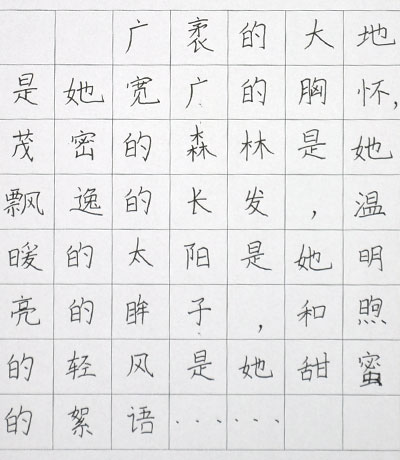 广袤的大地
是她宽广的胸怀,
茂密的森林是她
飘逸的长发，温
暖的太阳是她明
亮的眸子，和煦
的轻风是她甜蜜
的絮语······